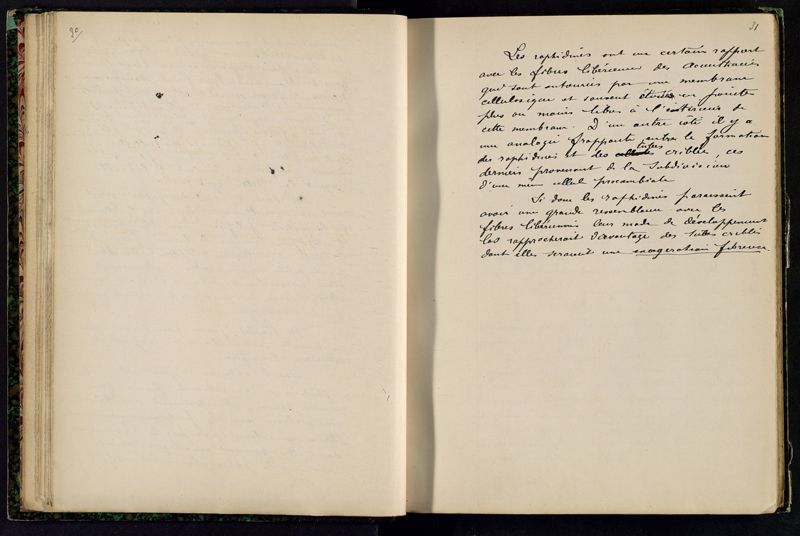 30/
31
Les raphidines ont un certain rapport
avec les fibres libériennes des Acanthacées
qui sont entourées par une membrane
cellulosique et souvent étirées en pointe
plus ou moins libres à l'intérieur de
cette membrane. D'un autre côté il y a
une analogie frappante entre la formation
des raphidines et des tubes criblés, ces
derniers provenant de la subdivision
d'une même cellule procambiale
Si donc les raphidines paraissent
avoir une grande ressemblance avec les
fibres libériennes leur mode de développement
les rapprocherait davantage des tubes criblés
dont elles seraient une exagération fibreuse